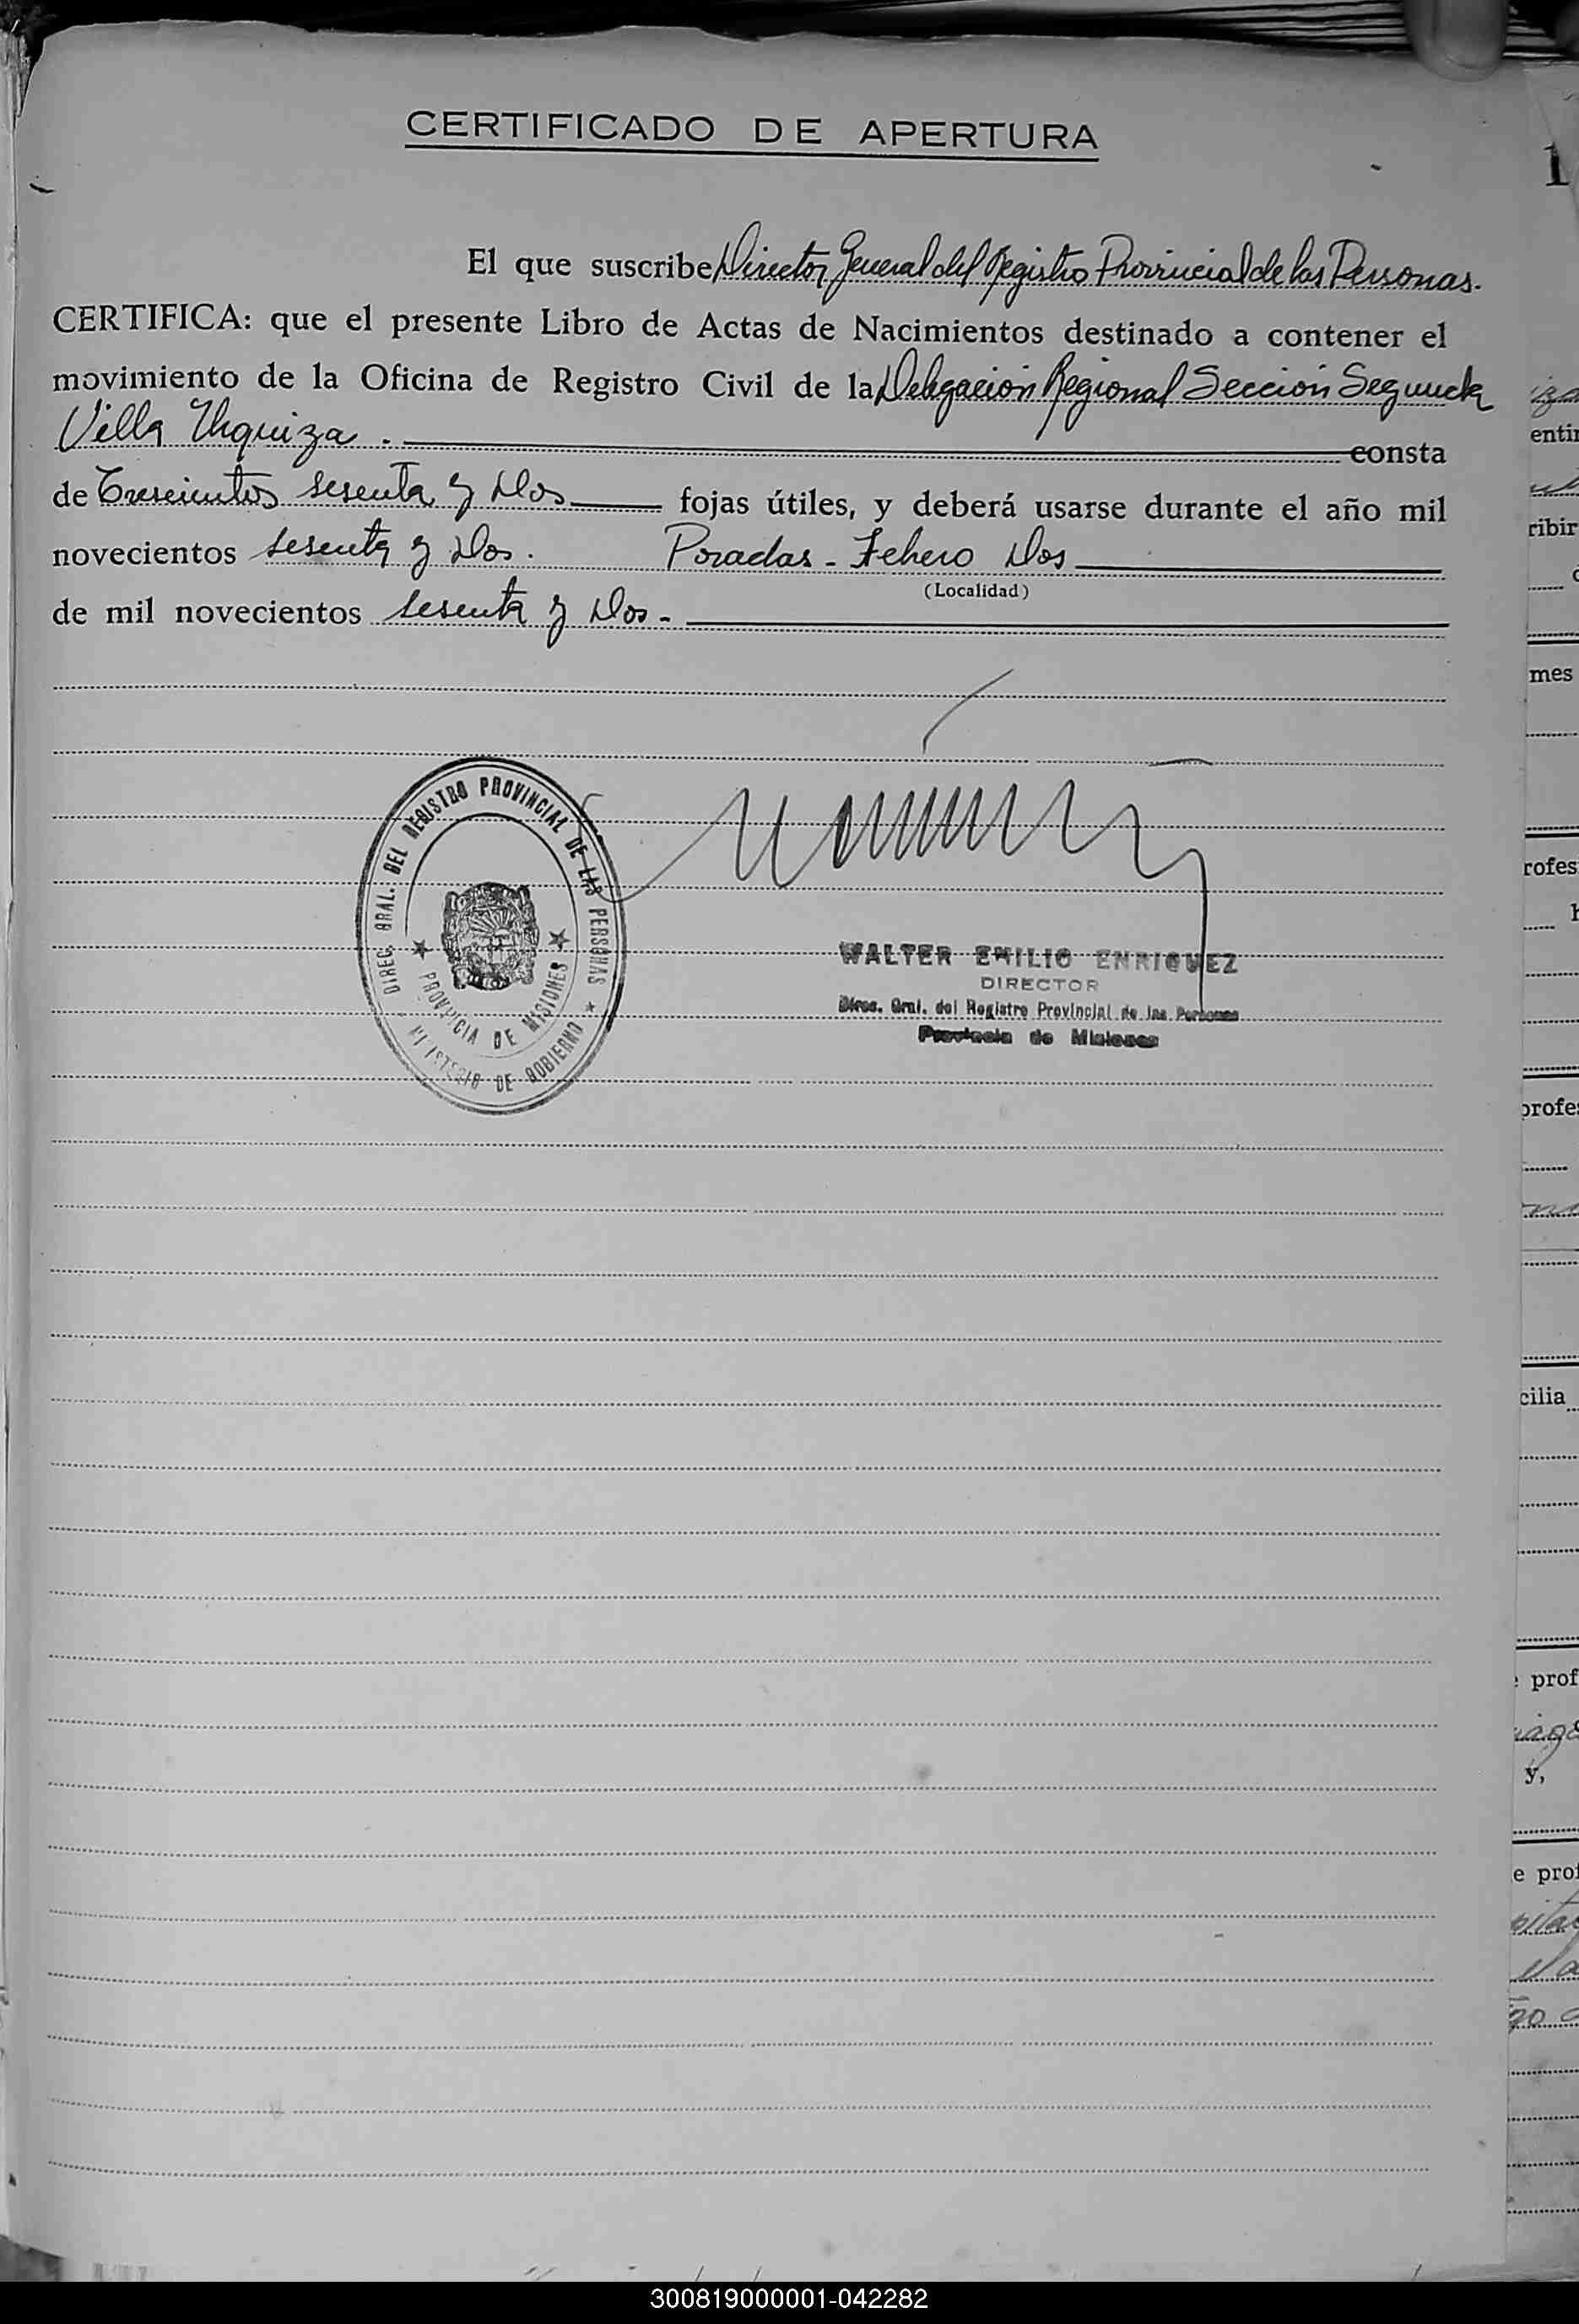 CERTIFICADO DE APERTURA
1
El que suscribe Director General del Registro Provincial de las Personas.
CERTIFICA: que el presente Libro de Actas de Nacimientos destinado a contener el
movimiento de la Oficina de Registro Civil de la Delegación Regional Sección Segunda
Villa Urquiza. consta
de Trescientos sesenta y Dos fojas útiles, y deberá usarse durante el año mil
novecientos sesenta y Dos. Posadas - Febrero Dos
(Localidad)
de mil novecientos sesenta y Dos -
DIREC. GRAL. DEL REGISTRO PROVINCIAL DE LAS PERSONAS
PROVINCIA DE MISIONES
MINISTERIO DE GOBIERNO
WALTER EMILIO ENRIQUEZ
DIRECTOR
Direc. Gral. del Registro Provincial de las Personas
Provincia de Misiones
entir
ribir
mes
rofes
profes
cilia
prof
y,
e prof
300819000001-042282